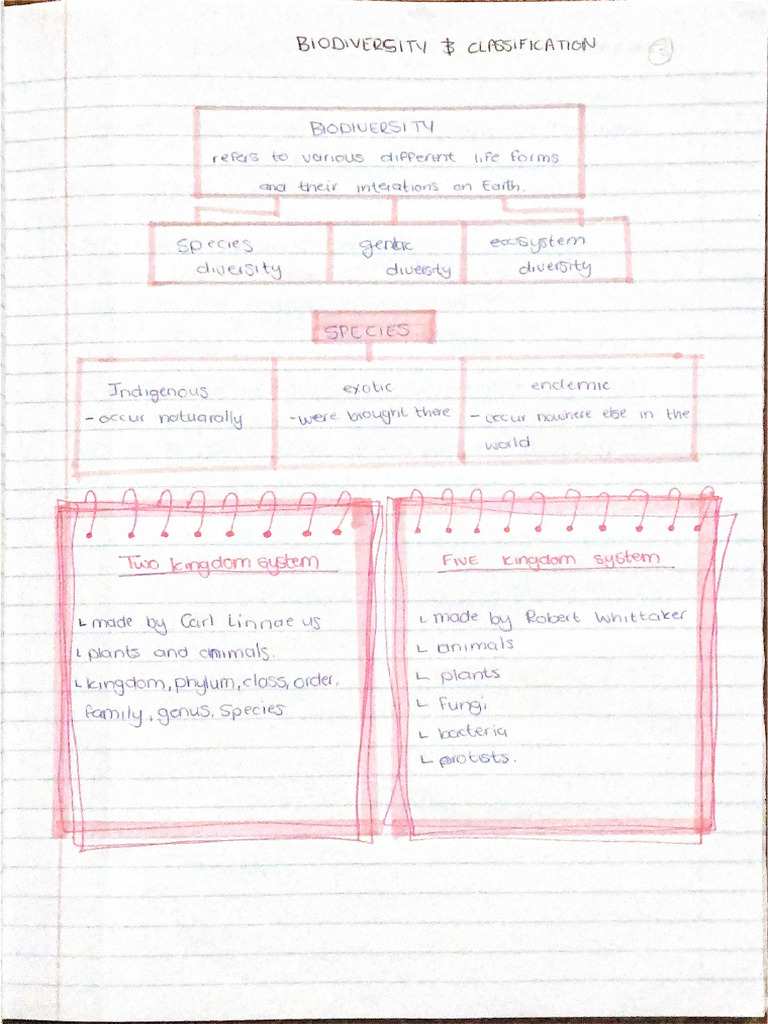 BIODIVERSITY & CLASSIFICATION
3
BIODIVERSITY
refers to various different life forms
and their interations on Earth.
species
diversity
gentic
diversity
ecosystem
diversity
SPECIES
Indigenous
- occur notuarally
exotic
- were brought there
endemic
- occur nowhere else in the
world
Two kingdom system
made by Carl Linnaeus
plants and animals.
kingdom, phylum, class, order,
family, genus, species
Five kingdom system
made by Robert Whittaker
animals
plants
fungi
bacteria
protists.